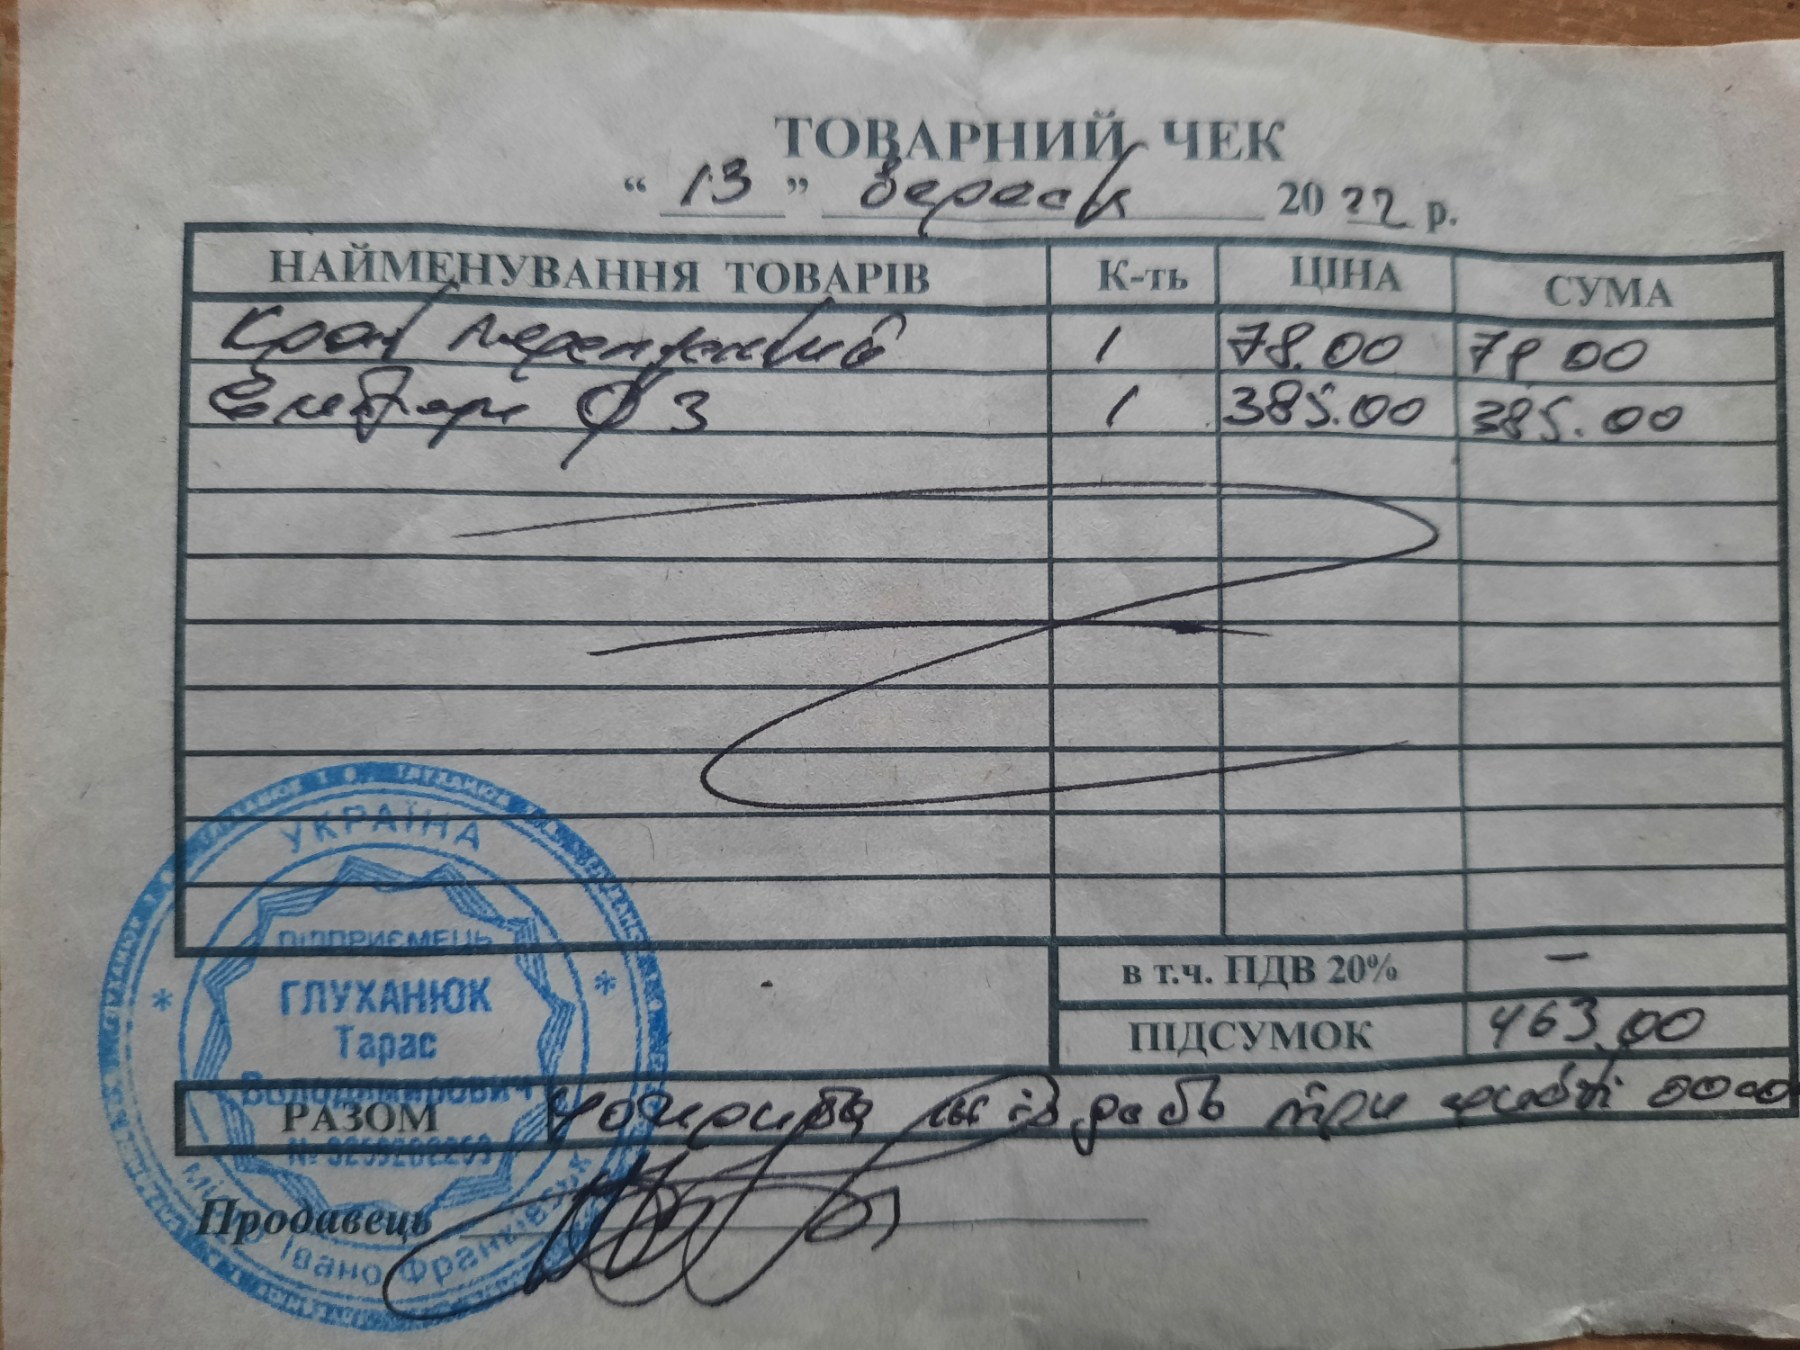 ТОВАРНИЙ ЧЕК
“ 13 ” вересня 20 22 р.
НАЙМЕНУВАННЯ ТОВАРІВ К-ть ЦІНА СУМА
Кран 1 78.00 78 00
Електроди Ф 3 1 385.00 385.00
в т.ч. ПДВ 20% —
ПІДСУМОК 463.00
РАЗОМ Чотириста шістдесят три 00
Продавець
УКРАЇНА
ПІДПРИЄМЕЦЬ
ГЛУХАНЮК
Тарас
Володимирович
місто Івано-Франківськ